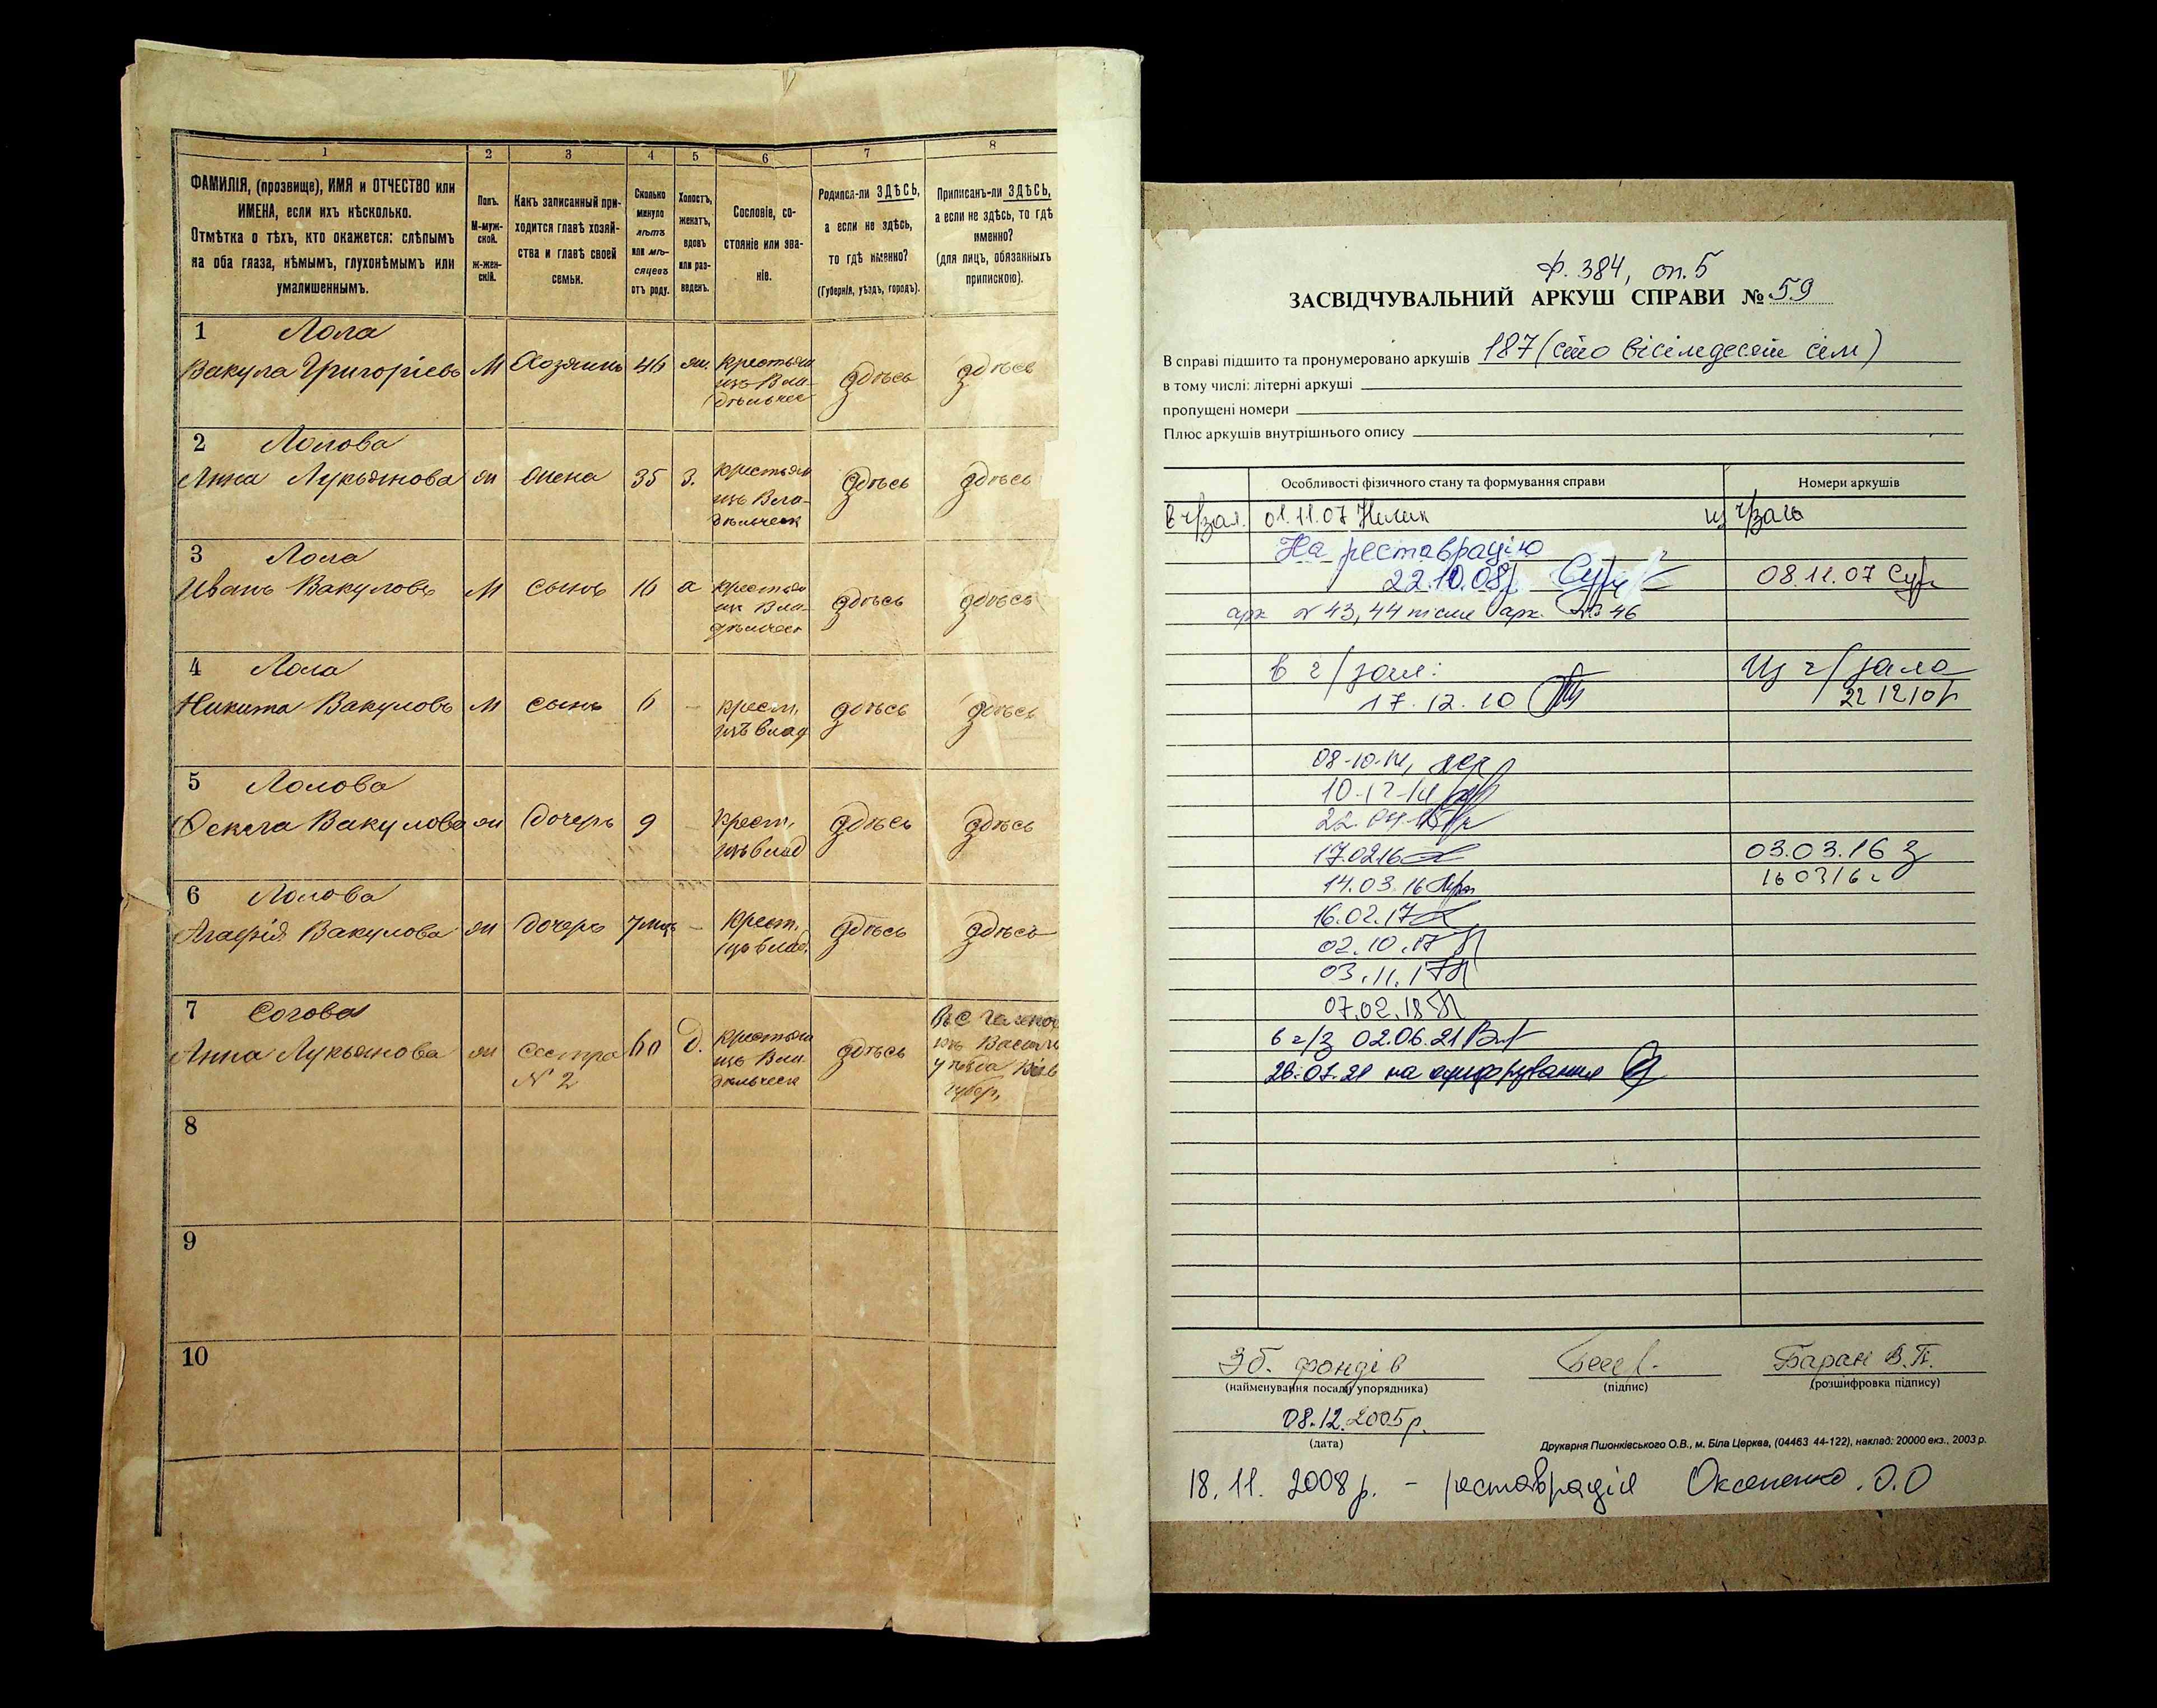 1
2
3
4
5
6
7
8
ФАМИЛІЯ, (прозвище), ИМЯ и ОТЧЕСТВО или
ИМЕНА, если ихъ нѣсколько.
Отмѣтка о тѣхъ, кто окажется: слѣпымъ
на оба глаза, нѣмымъ, глухонѣмымъ или
умалишеннымъ.
Полъ.
М-муж-
ской.
Ж-жен-
скій.
Какъ записанный при-
ходится главѣ хозяй-
ства и главѣ своей
семьи.
Сколько
минуло
лѣтъ
или мѣ-
сяцевъ
отъ роду.
Холостъ,
женатъ,
вдовъ
или раз-
веденъ.
Сословіе, со-
стояніе или зва-
ніе.
Родился-ли ЗДѢСЬ,
а если не здѣсь,
то гдѣ именно?
(Губернія, уѣздъ, городъ).
Приписанъ-ли ЗДѢСЬ,
а если не здѣсь, то гдѣ
именно?
(для лицъ, обязанныхъ
припискою).
1 Лола
Вакула Григоріевъ М Хозяинъ 46 ж. крестьян
изъ Вла-
дѣльчес
здѣсь здѣсь
2 Лолова
Анна Лукьянова ж жена 35 з. крестьян
изъ Вла-
дѣльческ
здѣсь здѣсь
3 Лола
Иванъ Вакуловъ М сынъ 16 х крестьян
изъ Вла-
дѣльчес
здѣсь здѣсь
4 Лола
Никита Вакуловъ М сынъ 6 - крест.
изъ влад
здѣсь здѣсь
5 Лолова
Фекла Вакулова ж дочерь 9 - крест.
изъ влад
здѣсь здѣсь
6 Лолова
Агафія Вакулова ж дочерь 7 мцъ - крест.
изъ влад.
здѣсь здѣсь
7
Анна Лукьянова ж сестра 60 д. крестьян
№ 2 изъ Вла
дѣльческ
здѣсь
уѣзда Кіев
губер.
8
9
10
ф. 384, оп. 5
ЗАСВІДЧУВАЛЬНИЙ АРКУШ СПРАВИ № 59
В справі підшито та пронумеровано аркушів 187 (сто вісімдесят сім)
в тому числі: літерні аркуші
пропущені номери
Плюс аркушів внутрішнього опису
Особливості фізичного стану та формування справи
Номери аркушів
в ч/зал. 01.11.07 из ч/зала
На реставрацію
22.10.08р. 08.11.07
арк № 43, 44 після арк. № 46
в ч/зал: Из ч/зала
17.12.10 22 12 10р
08-10-14,
10-12-14
22.04.15
17.02.16 03.03.16
14.03.16 16 03 16
16.02.17
02.10.17
03.11.17
07.02.18
в ч/з 02.06.21
26.07.21 на оцифрування
Зб. фондів Баран В.П.
(найменування посади упорядника) (підпис) (розшифровка підпису)
08.12.2005р.
(дата)
Друкарня Пшонківського О.В., м. Біла Церква, (04463 44-122), наклад: 20000 екз., 2003 р.
18.11.2008р. - реставрація Оксененко. О.О